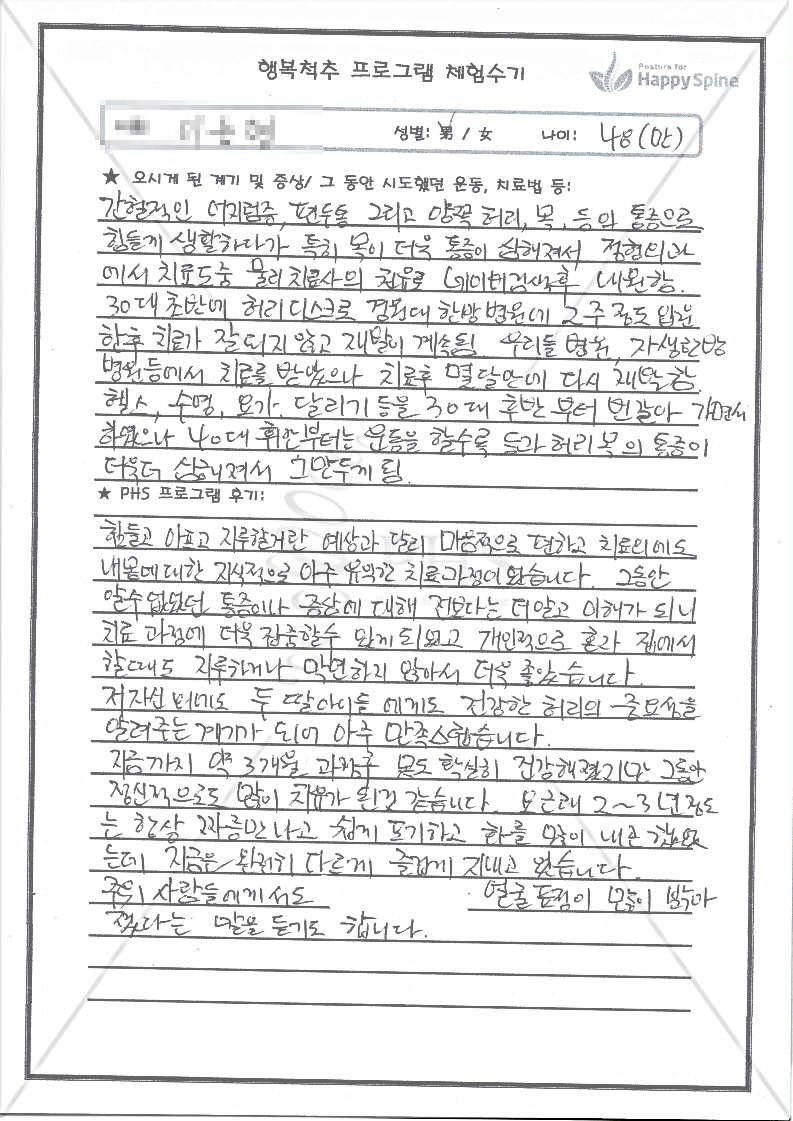 행복척추 프로그램 체험수기
Posture for
HappySpine
성별: 男 / 女 나이: 48 (만)
★ 오시게 된 계기 및 증상/ 그 동안 시도했던 운동, 치료법 등:
간헐적인 어지럼증, 편두통 그리고 양쪽 허리, 목, 등의 통증으로
힘들게 생활하다가 특히 목이 더욱 통증이 심해져서 정형외과
에서 치료도중 물리치료사의 권유로 네이버검색후 내원함.
30대 초반에 허리디스크로 경원대 한방병원에 2주 정도 입원
한후 치료가 잘 되지 않고 재발이 계속됨. 우리들 병원, 자생한방
병원등에서 치료를 받았으나 치료후 몇달만에 다시 재발함.
헬스, 수영, 요가, 달리기 등을 30대 후반 부터 번갈아 가면서
하였으나 40대 후반부터는 운동을 할수록 등과 허리 목의 통증이
더욱더 심해져서 그만두게 됨.
★ PHS 프로그램 후기:
힘들고 아프고 지루할거란 예상과 달리 마음적으로 편하고 치료외에도
내몸에대한 지식적으로 아주 유익한 치료과정이었습니다. 그동안
알수 없었던 통증이나 증상에 대해 전보다는 더알고 이해가 되니
치료 과정에 더욱 집중할수 있게 되었고 개인적으로 혼자 집에서
할때도 지루하거나 막연하지 않아서 더욱 좋았습니다.
저자신 외에도 두 딸아이들 에게도 건강한 허리의 중요성을
알려주는 계기가 되어 아주 만족스럽습니다.
지금까지 약 3개월 과정후 몸도 확실히 건강해졌지만 그동안
정신적으로도 많이 치유가 된것 같습니다. 최근래 2~3년 정도
는 항상 짜증만나고 쉽게 포기하고 화를 많이 내곤 했었
는데 지금은 완전히 다르게 즐겁게 지내고 있습니다.
주위 사람들에게서도 얼굴 표정이 많이 밝아
졌다는 말을 듣기도 합니다.